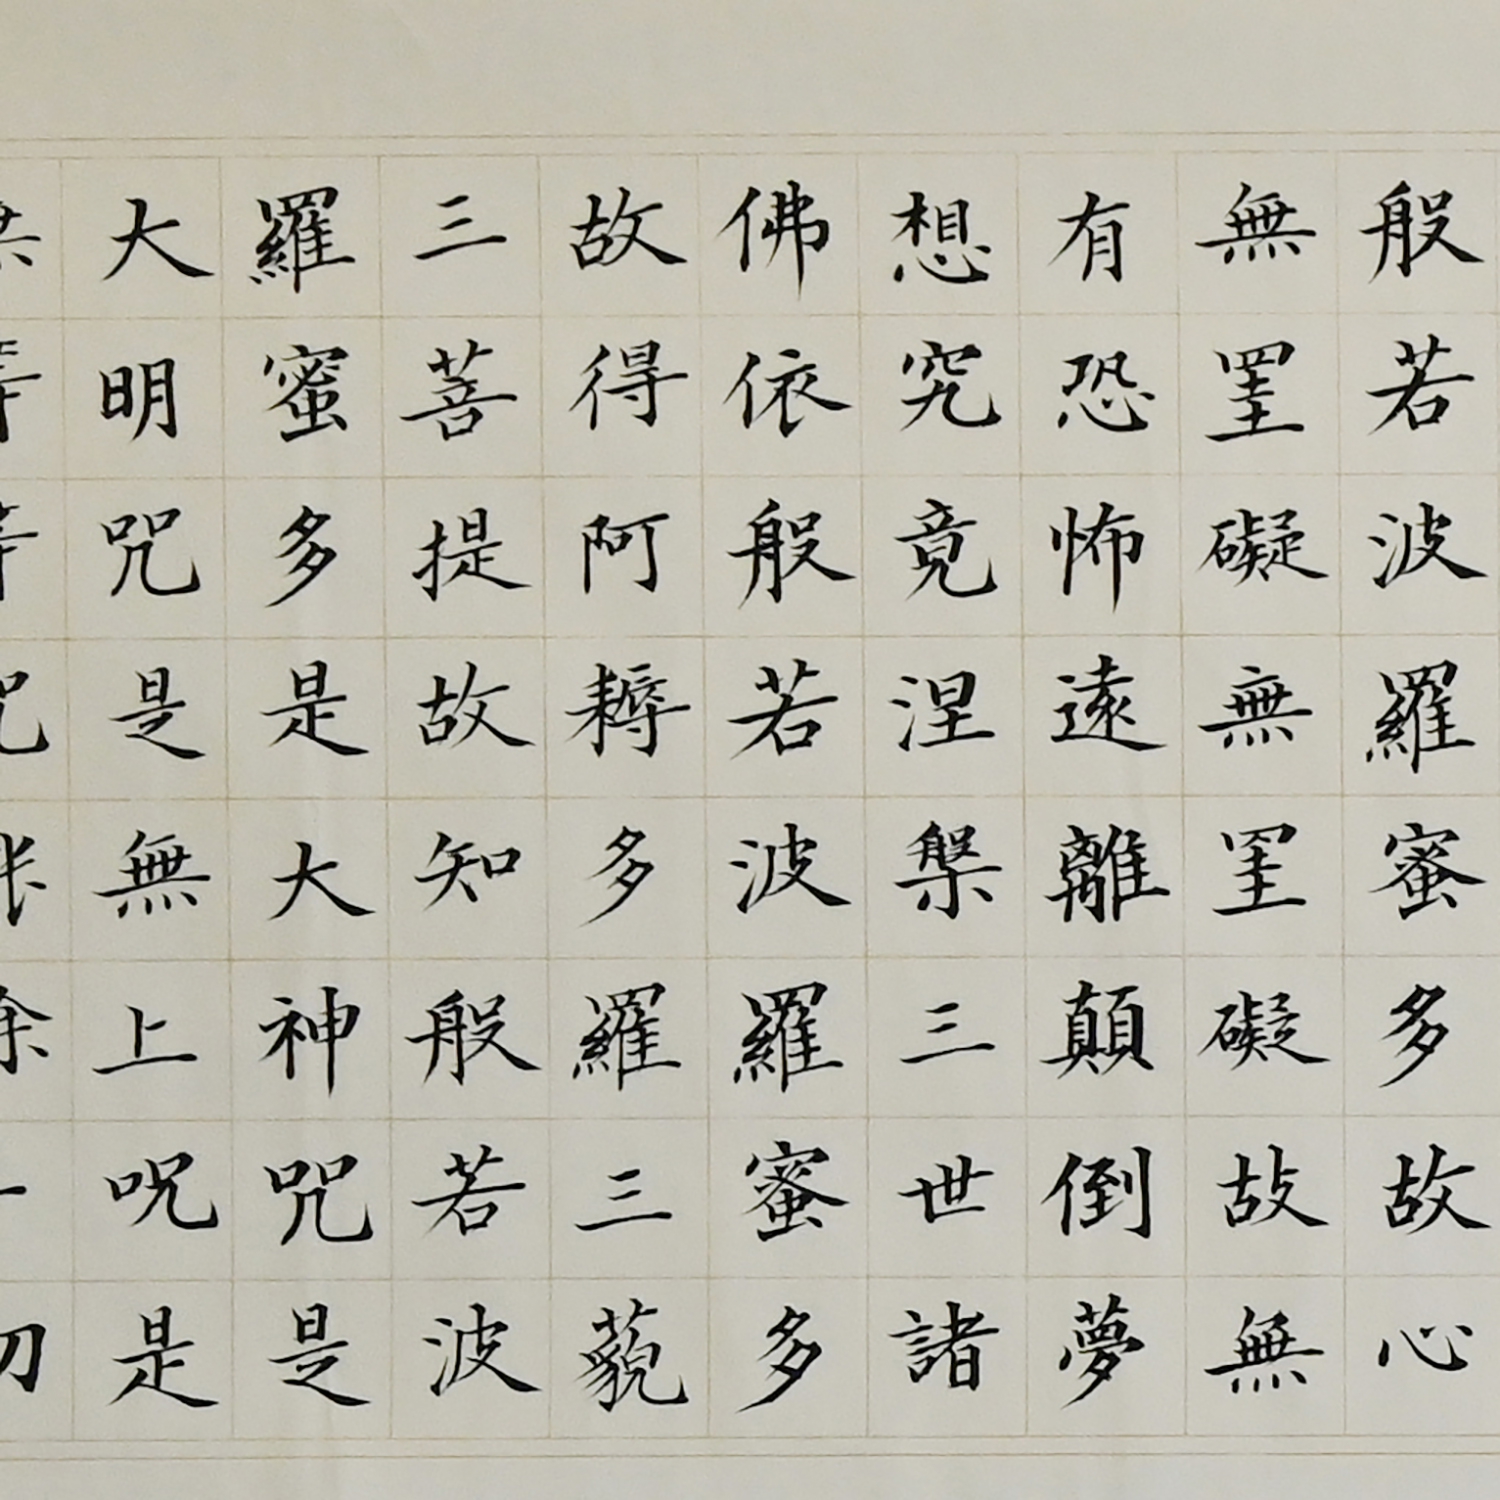 般若波羅蜜多故心
無罣礙無罣礙故無
有恐怖遠離顛倒夢
想究竟涅槃三世諸
佛依般若波羅蜜多
故得阿耨多羅三藐
三菩提故知般若波
羅蜜多是大神咒是
大明咒是無上呪是